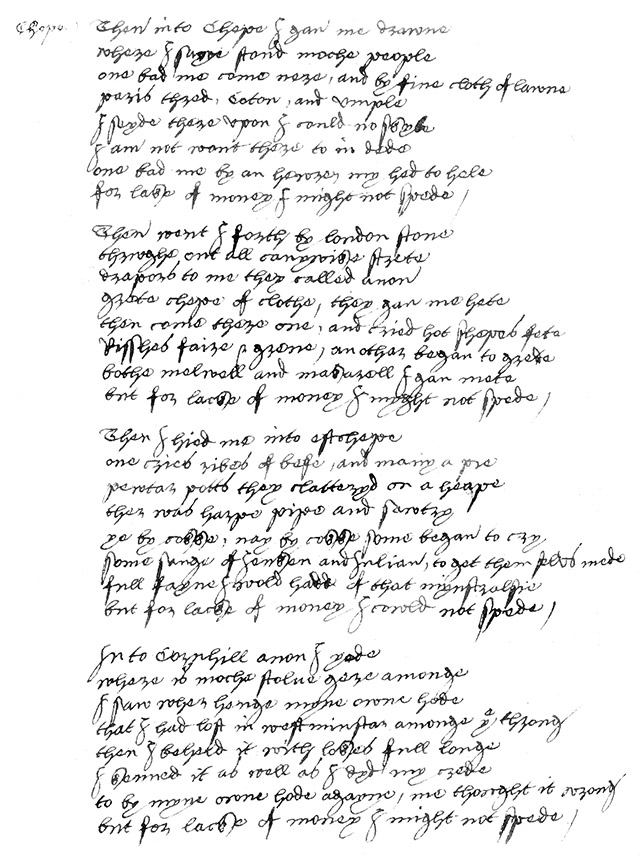 Chepe. Then into Chepe I gan me drawne
where I sawe stond moche people
one bad me come nere, and by fine cloth of lawne
paris thred, Coton, and vmple
I seyde there vpon I could no skyle
I am not wont there to in dede
one bad me by an hewrer my hed to hele
for lake of money I might not spede /
Then went I forth by london stone
thrwghe out all canywike strete
drapers to me they called anon
grete chepe of clothe, they gan me hete
then come there one, and cried hot shepes fete
Risshes faire & grene, an other began to grete
bothe melwell and makarell I gan mete
but for lacke of money I myght not spede /
Then I hied me into estchepe
one cries ribes of befe, and many a pie
pewtar potts they clatteryd on a heape
ther was harpe pipe and sawtry
ye by cokke, nay by cokke some began to cry
some sange of Jenken and Julian, to get them selvs mede
full fayne I wold hadd of that mynstralsie
but for lacke of money I cowld not spede /
Into Cornhill anon I yode
where is moche stolne gere amonge
I saw wher henge myne owne hode
that I had lost in westminstar amonge yᵉ throng
then I beheld it with lokes full longe
I kenned it as well as I dyd my crede
to by myne owne hode agayne, me thought it wrong
but for lacke of money I might not spede /